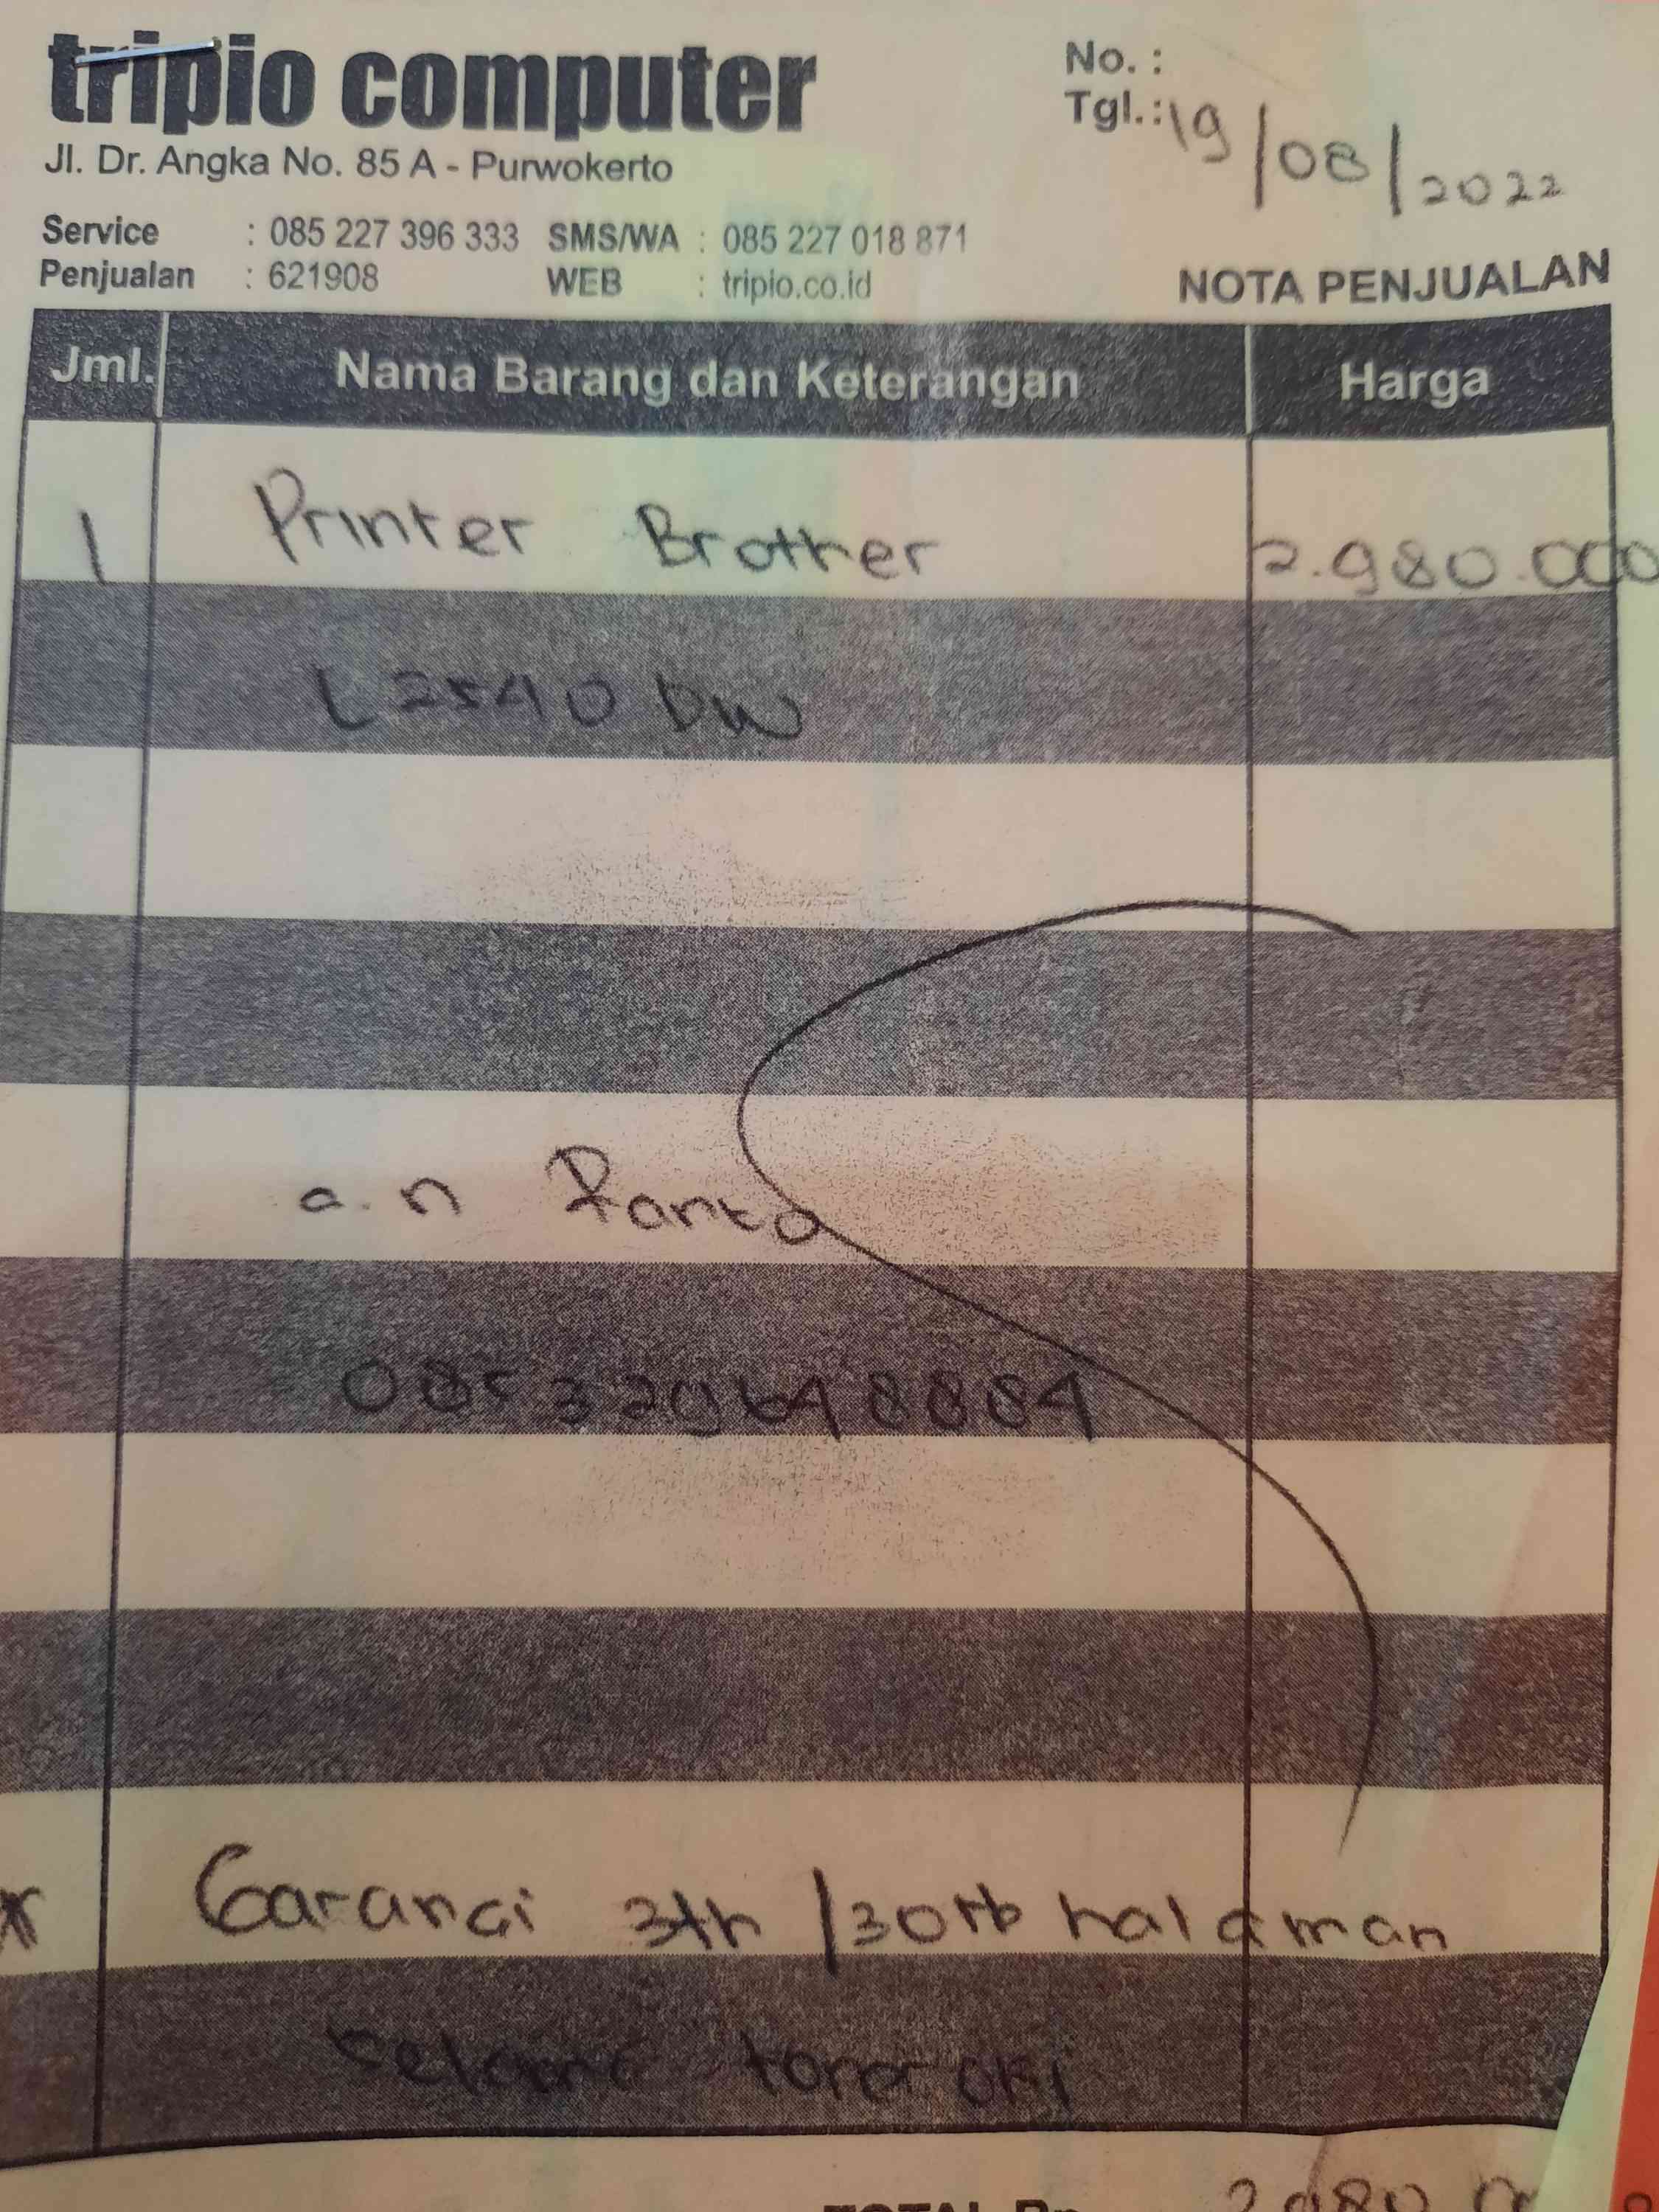 tripio computer
Jl. Dr. Angka No. 85 A - Purwokerto
No. :
Tgl. : 19/08/2022
Service : 085 227 396 333 SMS/WA : 085 227 018 871
Penjualan : 621908 WEB : tripio.co.id
NOTA PENJUALAN
Jml. Nama Barang dan Keterangan Harga
1 Printer Brother 2.980.000
L2540 DW
a.n
085329648884
* Garansi 3th /30rb halaman
toner ORI
TOTAL Rp